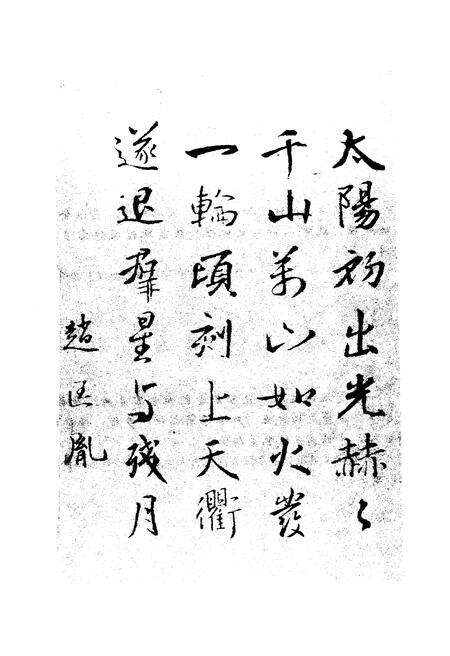 太陽初出光赫々
千山萬山如火發
一輪頃刻上天衢
遂退群星与殘月
趙匡胤